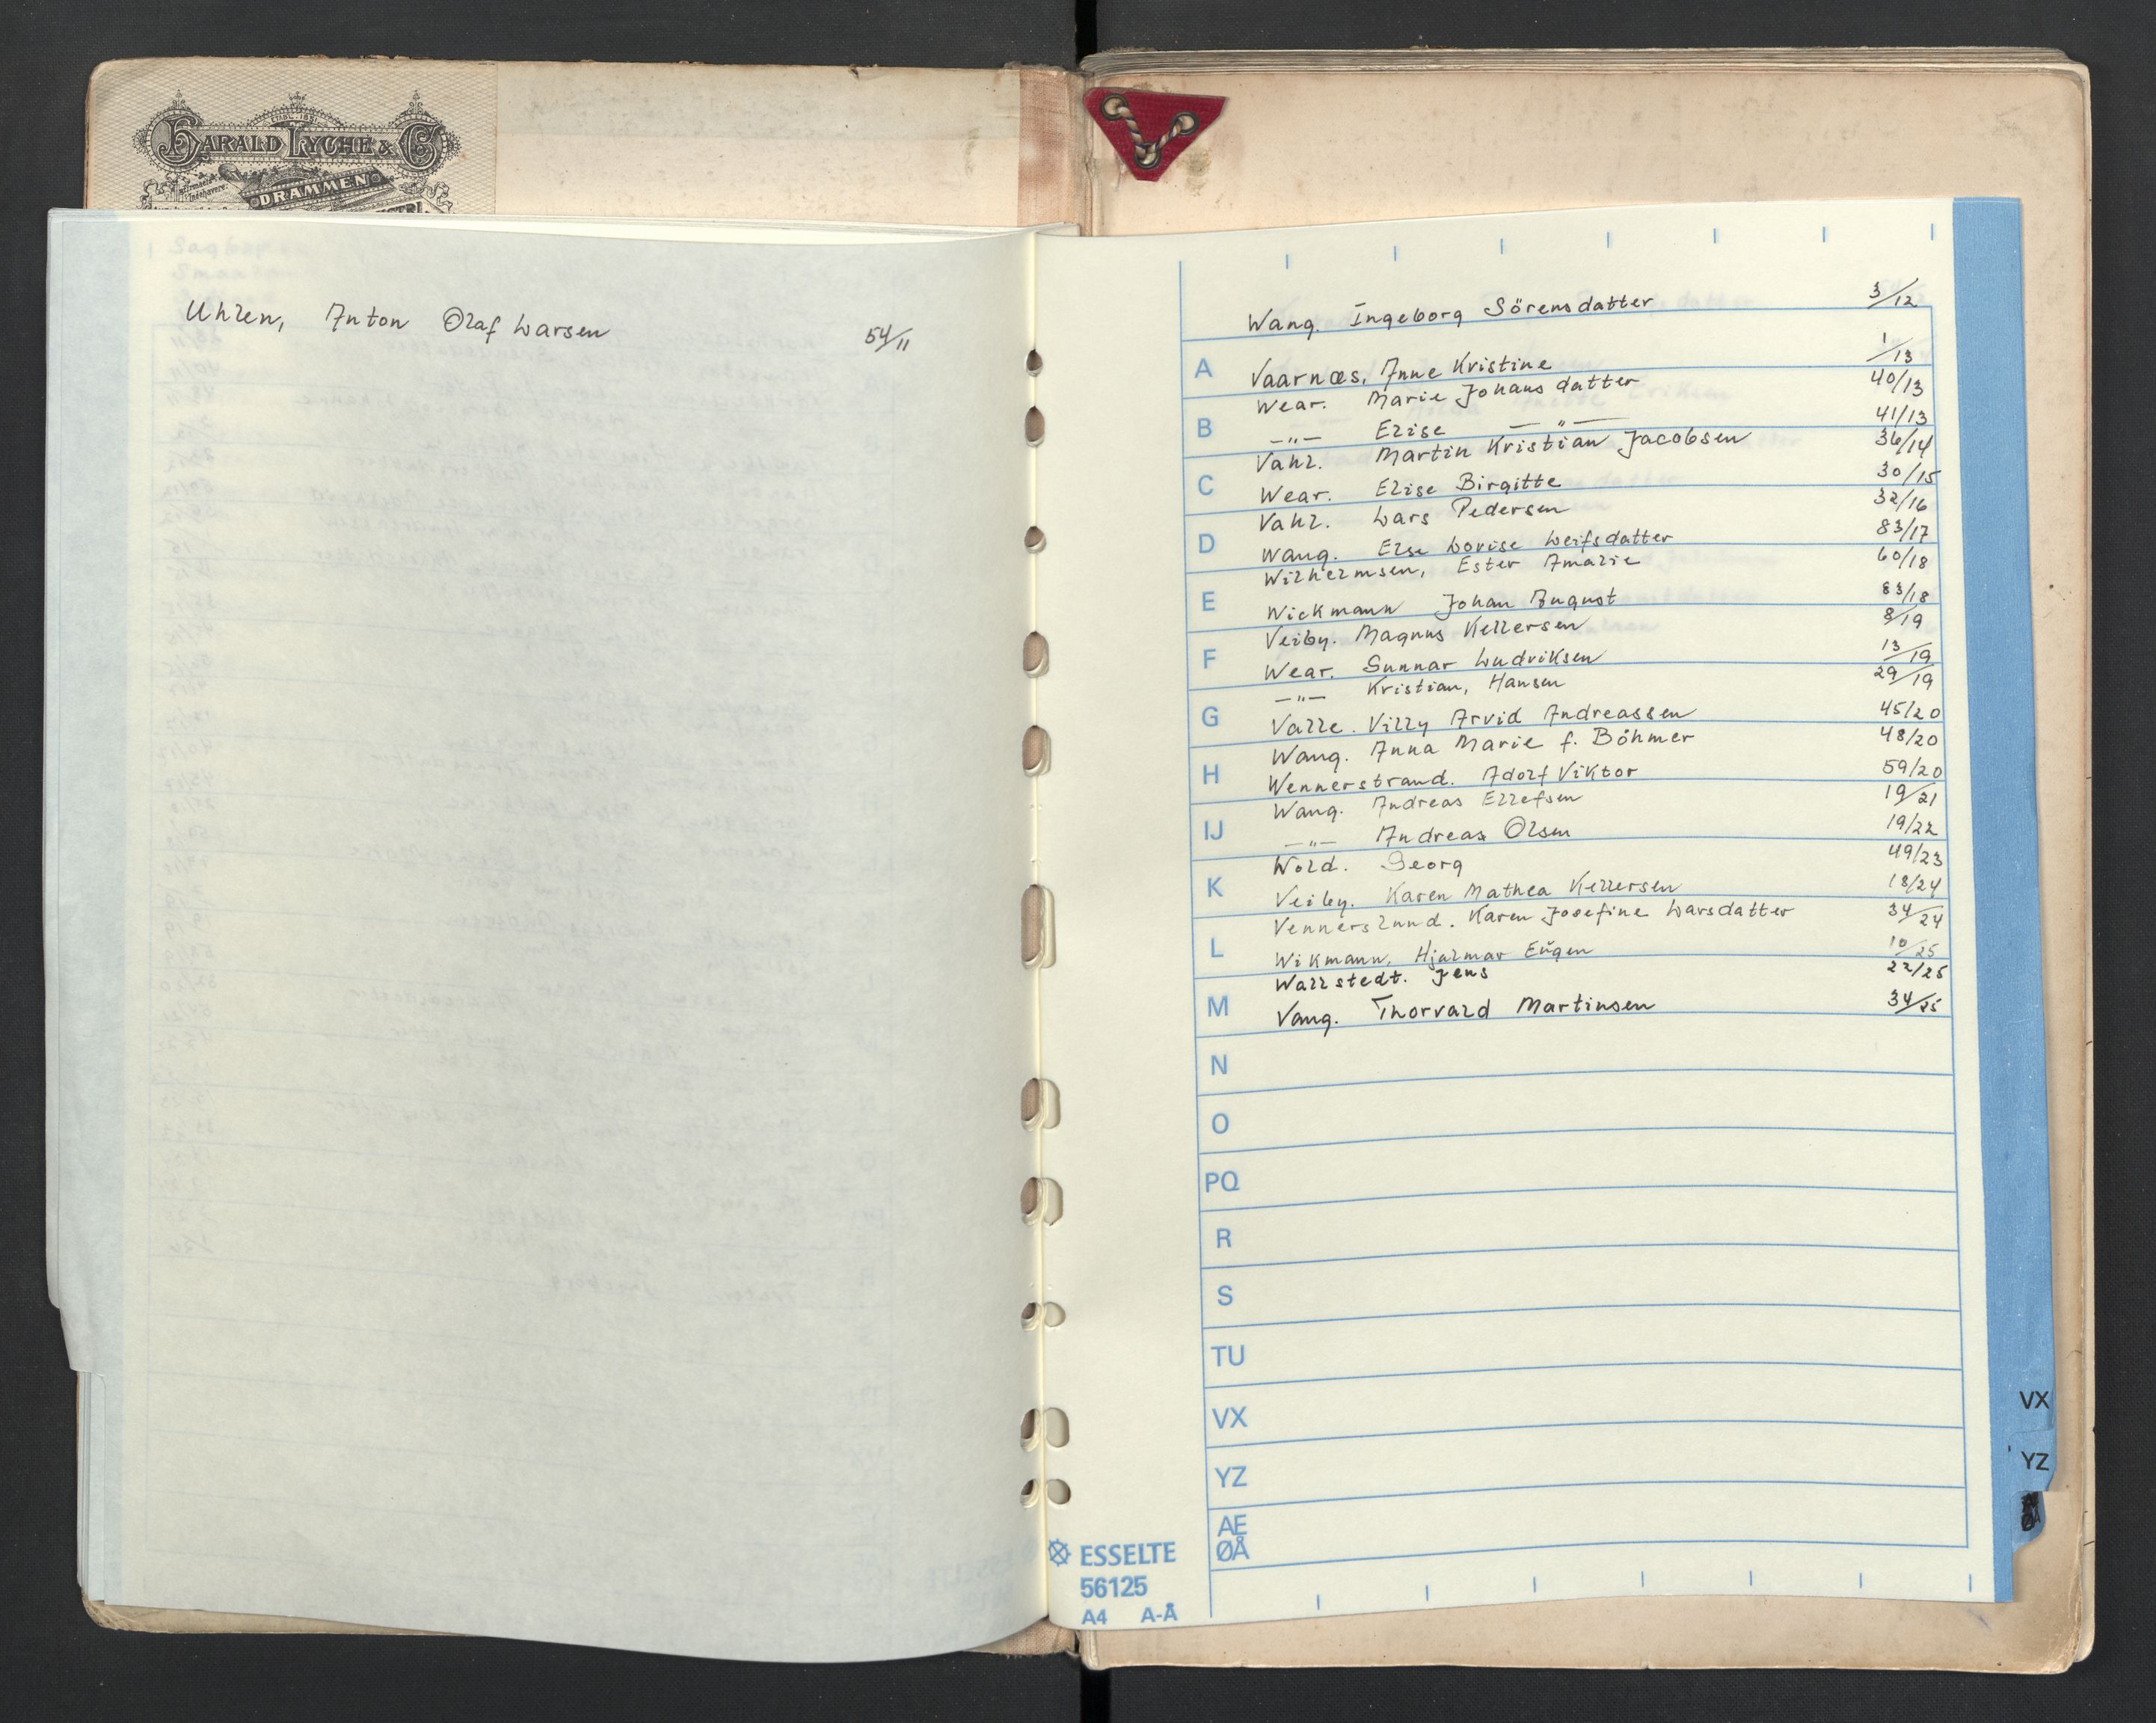 ETABL. 1831
HARALD LYCHE & Co
Firmaets Indehavere:
DRAMMEN
Uhlen, Anton Olaf Larsen 54/11
Wang. Ingeborg Sörensdatter 3/12
A
Vaarnæs, Anne Kristine 1/13
Wear. Marie Johansdatter 40/13
B
—"— Elise —"— 41/13
Vahl. Martin Kristian Jacobsen 36/14
C
Wear. Elise Birgitte 30/15
Vahl. Lars Pedersen 32/16
D
Wang. Else Lovise Leifsdatter 83/17
Wilhelmsen, Ester Amalie 60/18
E
Wickmann Johan August 83/18
Veiby. Magnus Kellersen 8/19
F
Wear. Gunnar Ludviksen 13/19
—"— Kristian, Hansen 29/19
G
Valle. Villy Arvid Andreassen 45/20
Wang. Anna Marie f. Böhmer 48/20
H
Wennerstrand. Adolf Viktor 59/20
Wang. Andreas Ellefsen 19/21
IJ
—"— Andreas Olsen 19/22
Wold. Georg 49/23
K
Veiby. Karen Mathea Kellersen 18/24
Vennerslund. Karen Josefine Larsdatter 34/24
L
Wikmann, Hjalmar Eŭgen 10/25
Wallstedt. Jens 22/25
M
Vang. Thorvald Martinsen 34/25
N
O
PQ
R
S
TU
VX
YZ
AE
ØÅ
VX
YZ
ØÅ
ESSELTE
56125
A4 A-Å